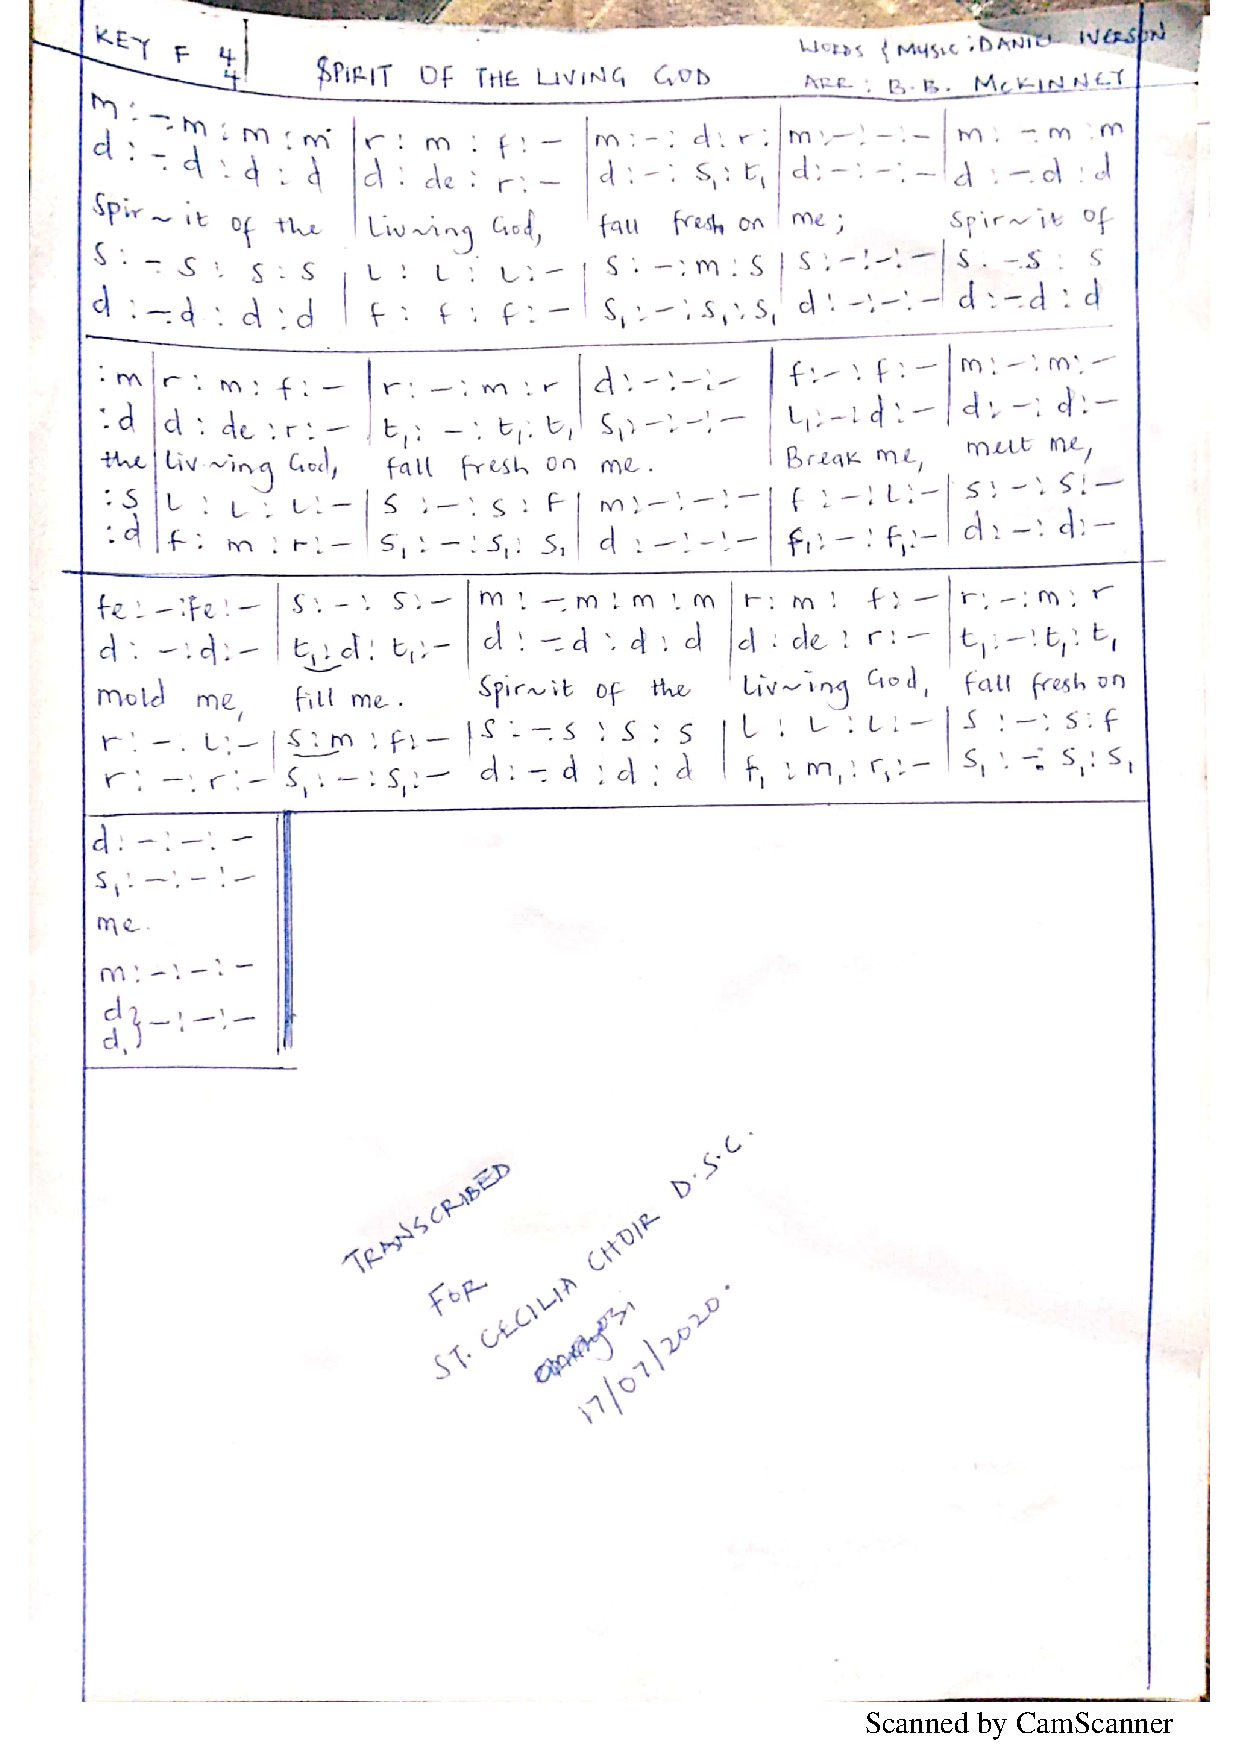 KEY F 4/4
SPIRIT OF THE LIVING GOD
WORDS & MUSIC : DANIEL IVERSON
ARR : B. B. MCKINNEY
m : -.m : m : m | r : m : f : - | m : - : d : r : | m : - : - : - | m : -.m : m
d : -.d : d : d | d : de : r : - | d : - : s₁ : t₁ | d : - : - : - | d : -.d : d
Spir~it of the | Liv~ing God, | fall fresh on | me; | Spir~it of
s : -.s : s : s | l : l : l : - | s : - : m : s | s : - : - : - | s : -.s : s
d : -.d : d : d | f : f : f : - | s₁ : - : s₁ : s₁ | d : - : - : - | d : -.d : d
: m | r : m : f : - | r : - : m : r | d : - : - : - | f : - : f : - | m : - : m : -
: d | d : de : r : - | t₁ : - : t₁ : t₁ | s₁ : - : - : - | l₁ : - : d : - | d : - : d : -
the | liv~ing God, | fall fresh on | me. | Break me, | melt me,
: s | l : l : l : - | s : - : s : f | m : - : - : - | f : - : l : - | s : - : s : -
: d | f : m : r : - | s₁ : - : s₁ : s₁ | d : - : - : - | f₁ : - : f₁ : - | d : - : d : -
fe : - : fe : - | s : - : s : - | m : -.m : m : m | r : m : f : - | r : - : m : r
d : - : d : - | t₁ : d : t₁ : - | d : -.d : d : d | d : de : r : - | t₁ : - : t₁ : t₁
mold me, | fill me. | Spir~it of the | Liv~ing God, | fall fresh on
r : - : l : - | s : m : f : - | s : -.s : s : s | l : l : l : - | s : - : s : f
r : - : r : - | s₁ : - : s₁ : - | d : -.d : d : d | f₁ : m₁ : r₁ : - | s₁ : - : s₁ : s₁
d : - : - : -
s₁ : - : - : -
me.
m : - : - : -
d
d₁ } - : - : -
TRANSCRIBED
FOR
ST. CECILIA CHOIR D.S.C.
17/07/2020.
Scanned by CamScanner